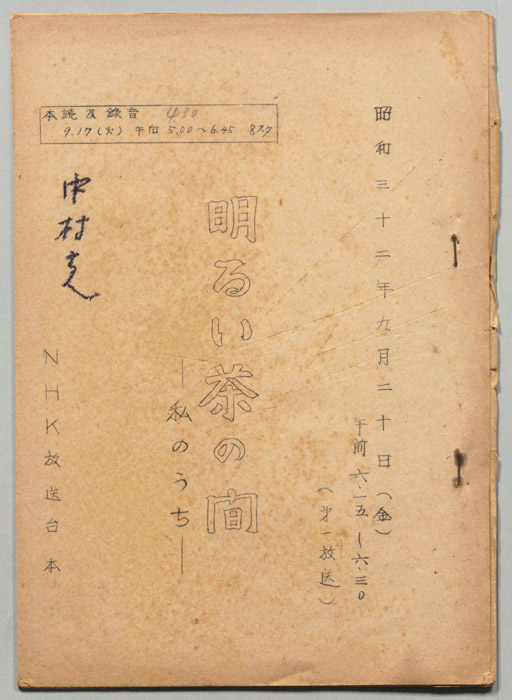 昭和三十二年九月二十日(金)
午前六・一五―六・三〇
(第一放送)
明るい茶の間
―私のうち―
本読及録音 430
9.17(火) 午后 5.00〜6.45 8スタ
中村克
NHK放送台本